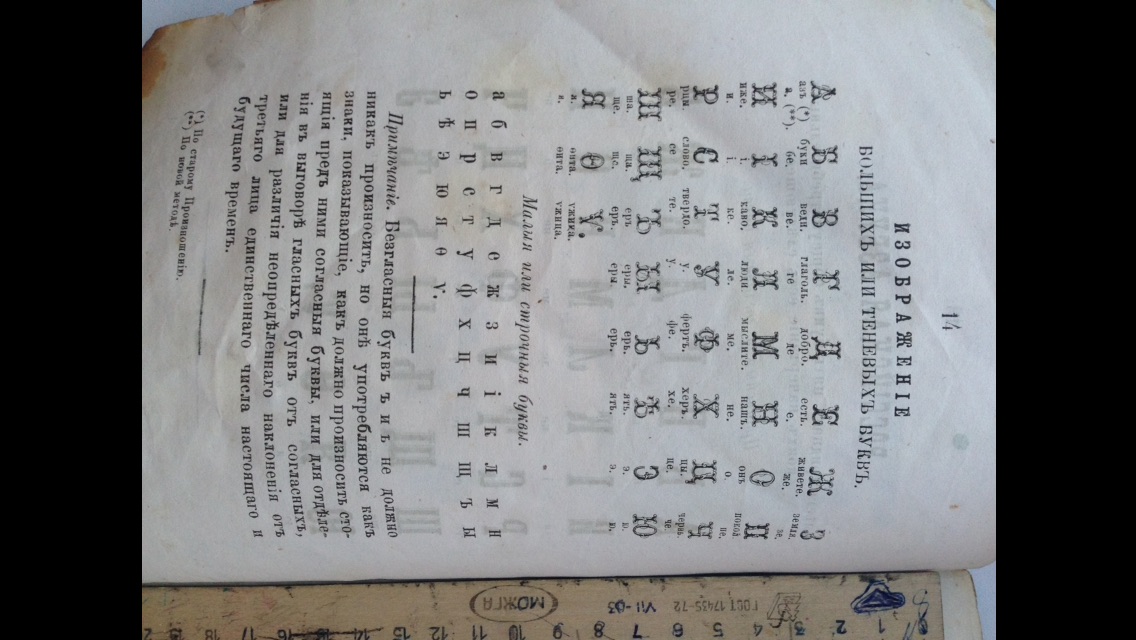 14
ИЗОБРАЖЕНІЕ
БОЛЬШИХЪ ИЛИ ТЕНЕВЫХЪ БУКВЪ.
А Б В Г Д Е Ж З
азъ (*) буки веди. глаголь. добро. есть. живете. земля,
а, (**). бе. ве. ге де е. же. зе,
И І К Л М Н О П
иже. і, како, люди мыслите. нашъ. онъ покой
и. і ке. ле. ме. не. о. пе,
Р С Т У Ф Х Ц Ч
рцы. слово, твердо. у. фертъ. херъ. цы. червь.
ре, се те. у фе. хе. це. че
Ш Щ Ъ Ы Ь Ѣ Э Ю
ша. ща. еръ еры. ерь. ять. э. ю.
ше. ще. еръ. еры ерь. ять. э. ю.
Я Ѳ Ѵ.
я. ѳита. ужица.
я. ѳита. ужица.
Малыя или строчныя буквы.
а б в г д е ж з и і к л м н
о п р с т у ф х ц ч ш щ ъ ы
ь ѣ э ю я ѳ ѵ.
Примѣчаніе. Безгласныя буквъ ъ и ь не должно
никакъ произносить, но онѣ употребляются какъ
знаки, показывающіе, какъ должно произносить сто-
ящія предъ ними согласныя буквы, или для отдѣле-
нія въ выговорѣ гласныхъ буквъ отъ согласныхъ,
или для различія неопредѣленнаго наклоненія отъ
третьяго лица единственнаго числа настоящаго и
будущаго временъ.
(*) По старому Произношенію.
(**) По новой методѣ.
МОЖГА VII-03 ГОСТ 17435-72
1 2 3 4 5 6 7 8 9 10 11 12 13 14 15 16 17 18 19